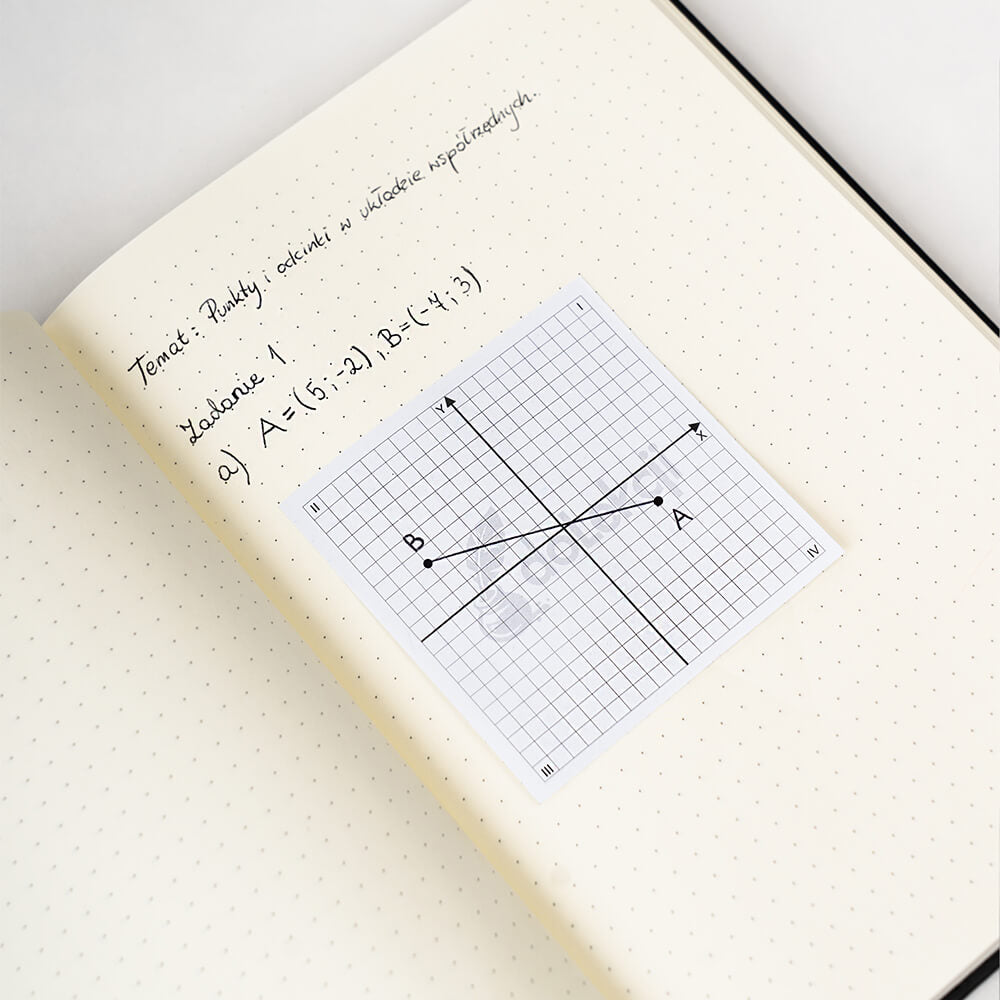 Temat: Punkty i odcinki w układzie współrzędnych.
Zadanie 1
a) A=(5;-2), B=(-7;3)
I
Y
X
II
B
A
IV
III